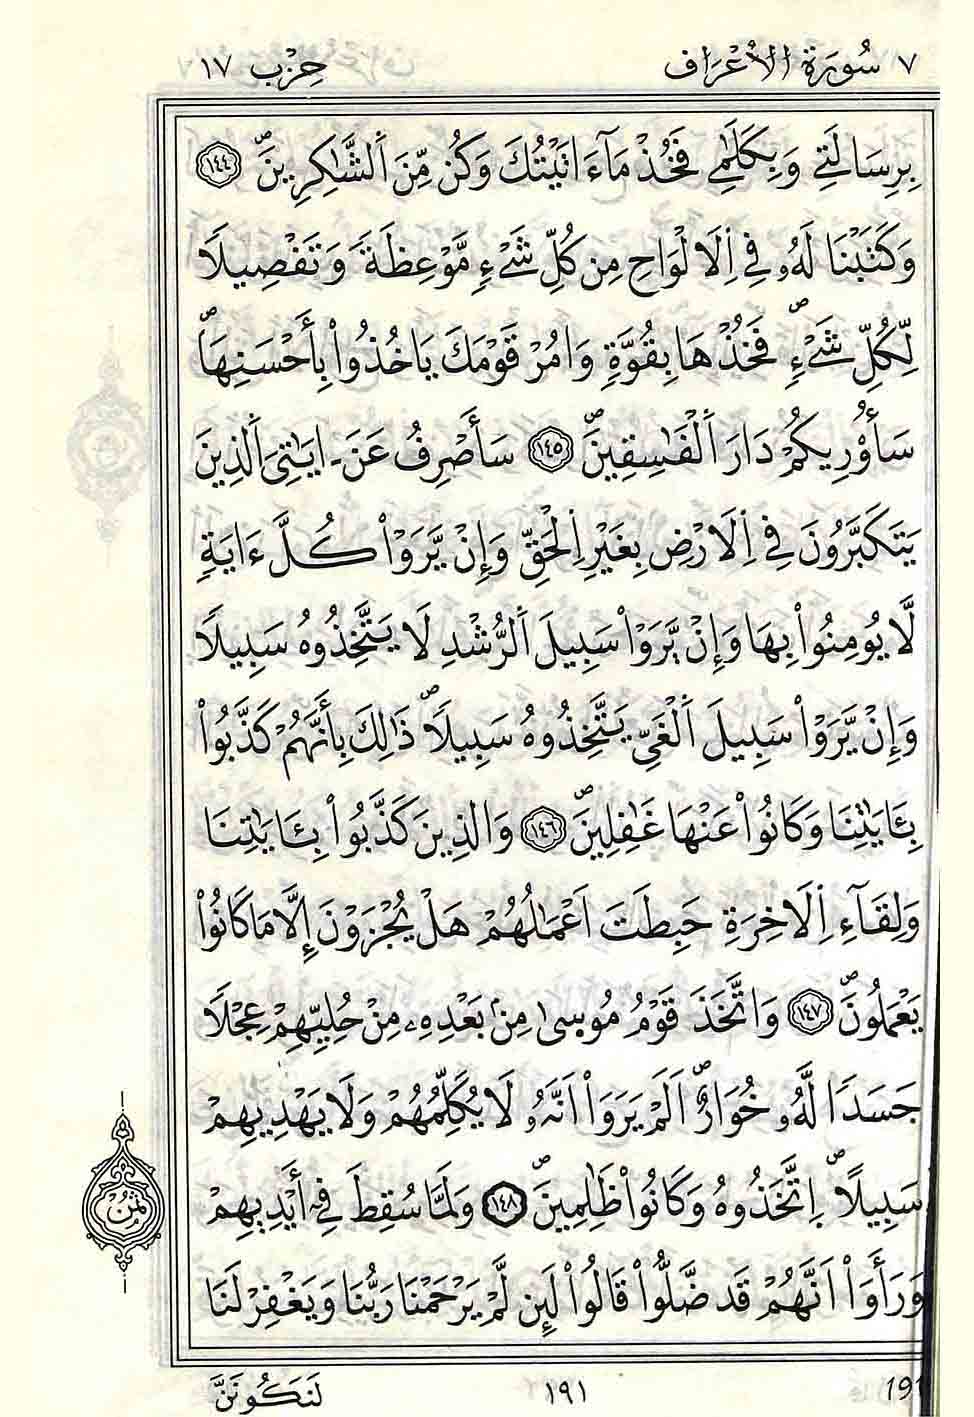 ٧ سُورَةُ الاَعْرَافِ حِزْب ١٧
بِرِسَالَتِے وَبِكَلَٰمِے فَخُذْ مَآ ءَاتَيْتُكَ وَكُن مِّنَ اَلشَّٰكِرِينَۖ ١٤٤
وَكَتَبْنَا لَهُۥ فِے اِلَالْوَاحِ مِن كُلِّ شَےْءٖ مَّوْعِظَةٗ وَتَفْصِيلاٗ
لِّكُلِّ شَےْءٖۖ فَخُذْهَا بِقُوَّةٖ وَامُرْ قَوْمَكَ يَاخُذُواْ بِأَحْسَنِهَاۖ
سَأُوْرِيكُمْ دَارَ اَلْفَٰسِقِينَۖ ١٤٥ سَأَصْرِفُ عَنَ ـ ايَٰتِيَ اَلذِينَ
يَتَكَبَّرُونَ فِے اِلَارْضِ بِغَيْرِ اِلْحَقِّ وَإِنْ يَّرَوْاْ كُلَّ ءَايَةٖ
لَّا يُومِنُواْ بِهَا وَإِنْ يَّرَوْاْ سَبِيلَ اَلرُّشْدِ لَا يَتَّخِذُوهُ سَبِيلاٗ
وَإِنْ يَّرَوْاْ سَبِيلَ اَلْغَيِّ يَتَّخِذُوهُ سَبِيلاٗۖ ذَٰلِكَ بِأَنَّهُمْ كَذَّبُواْ
بِـَٔايَٰتِنَا وَكَانُواْ عَنْهَا غَٰفِلِينَۖ ١٤٦ وَالذِينَ كَذَّبُواْ بِـَٔايَٰتِنَا
وَلِقَآءِ اِلَاخِرَةِ حَبِطَتَ اَعْمَٰلُهُمْ هَلْ يُجْزَوْنَ إِلَّا مَا كَانُواْ
يَعْمَلُونَۖ ١٤٧ وَاتَّخَذَ قَوْمُ مُوسىٰ مِنۢ بَعْدِهِۦ مِنْ حُلِيِّهِمْ عِجْلاٗ
جَسَداٗ لَّهُۥ خُوَارٌۖ اَلَمْ يَرَوَاْ اَنَّهُۥ لَا يُكَلِّمُهُمْ وَلَا يَهْدِيهِمْ
سَبِيلاًۖ اِتَّخَذُوهُ وَكَانُواْ ظَٰلِمِينَۖ ١٤٨ وَلَمَّا سُقِطَ فِے أَيْدِيهِمْ
ثُمُن
وَرَأَوَاْ اَنَّهُمْ قَد ضَّلُّواْ قَالُواْ لَئِن لَّمْ يَرْحَمْنَا رَبُّنَا وَيَغْفِرْ لَنَا
لَنَكُونَنَّ ١٩١ 191